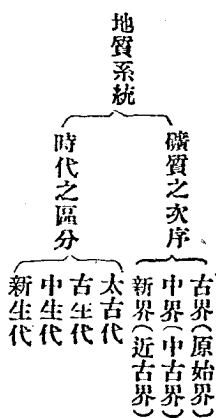 地質系統
礦質之次序
古界(原始界)
中界(中古界)
新界(近古界)
時代之區分
太古代
古生代
中生代
新生代